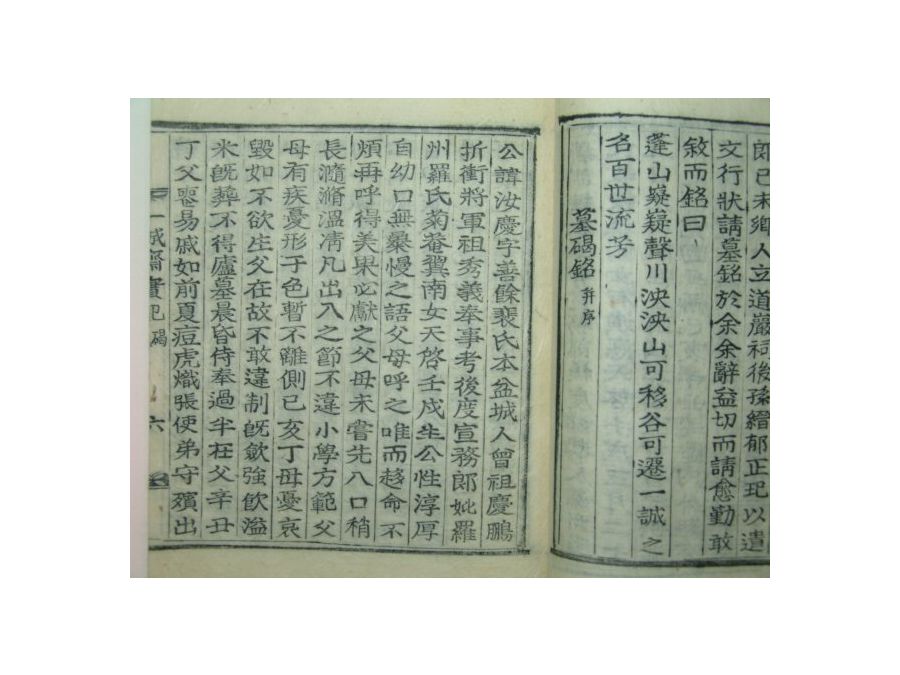 郎己未鄉人立道巖祠後孫縉郁正玘以遺
文行狀請墓銘於余余辭益切而請愈勤敢
敘而銘曰
蓬山嶷嶷聲川泱泱山可移谷可遷一誠之
名百世流芳
墓碣銘 幷序
公諱汝慶字善餘裴氏本盆城人曾祖慶鵬
折衝將軍祖秀義奉事考後度宣務郎妣羅
州羅氏菊菴翼南女天啓壬戌生公性淳厚
自幼口無㬥慢之語父母呼之唯而趍命不
煩再呼得美果必獻之父母未嘗先入口稍
長瀡滫溫凊凡出入之節不違小學方範父
母有疾憂形于色暫不離側己亥丁母憂哀
毀如不欲生父在故不敢違制旣斂強飮溢
米旣葬不得廬墓晨昏侍奉過半在父辛丑
丁父喪易戚如前夏痘虎熾張使弟守殯出
誠齋實記 碣 六